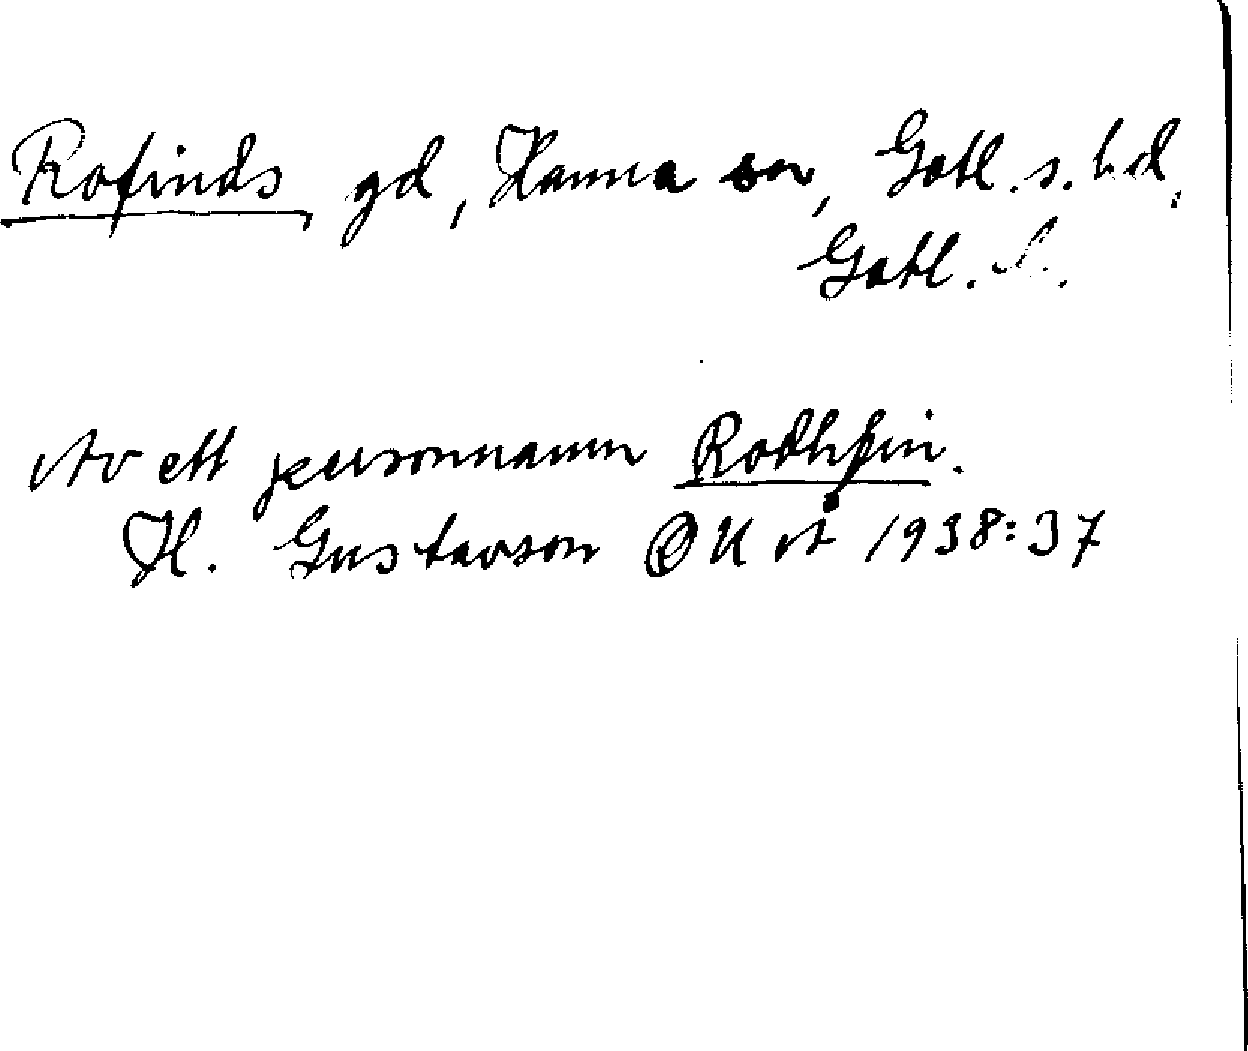 Rofinds gd, Hamra sn, Gotl. s. hd,
Gotl. l.
Av ett personnamn Rodhfin.
H. Gustavson OUÅ 1938:37